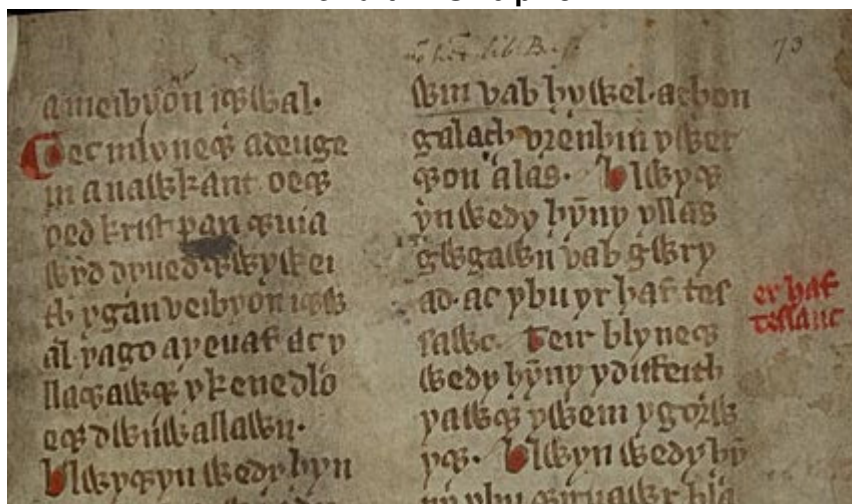 73
ameibyon idwal.
Dec mlyned adeuge
in anawkant oed
oed krist pan diua
wyd dyued dwywei
th ygan veibyon idw
al yago ayeuaf ac y
lladawd ykenedlo
ed dwnwallawn.
Blwydyn wedy hyn
win vab hywel. achon
galach vrenhin ywer
don alas. Blwyd
yn wedy hẏny yllas
gwgawn vab gwry
ad. ac ybu yr haf tes
sawc. Teir blyned
wedy hẏny ydifeith
yawd ywein ygorw
yd. Blwyn wedy hy
ny ybu diruawr eira
er haf
tessauc